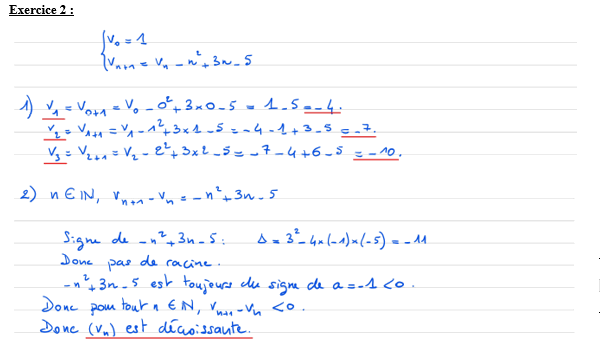 Exercice 2 :
{ V₀ = 1
{ Vₙ₊₁ = Vₙ - n² + 3n - 5
1) V₁ = V₀₊₁ = V₀ - 0² + 3×0 - 5 = 1 - 5 = -4.
V₂ = V₁₊₁ = V₁ - 1² + 3×1 - 5 = -4 - 1 + 3 - 5 = -7.
V₃ = V₂₊₁ = V₂ - 2² + 3×2 - 5 = -7 - 4 + 6 - 5 = -10.
2) n ∈ ℕ, Vₙ₊₁ - Vₙ = -n² + 3n - 5
Signe de -n² + 3n - 5 : Δ = 3² - 4×(-1)×(-5) = -11
Donc pas de racine.
-n² + 3n - 5 est toujours du signe de a = -1 < 0.
Donc pour tout n ∈ ℕ, Vₙ₊₁ - Vₙ < 0.
Donc (Vₙ) est décroissante.